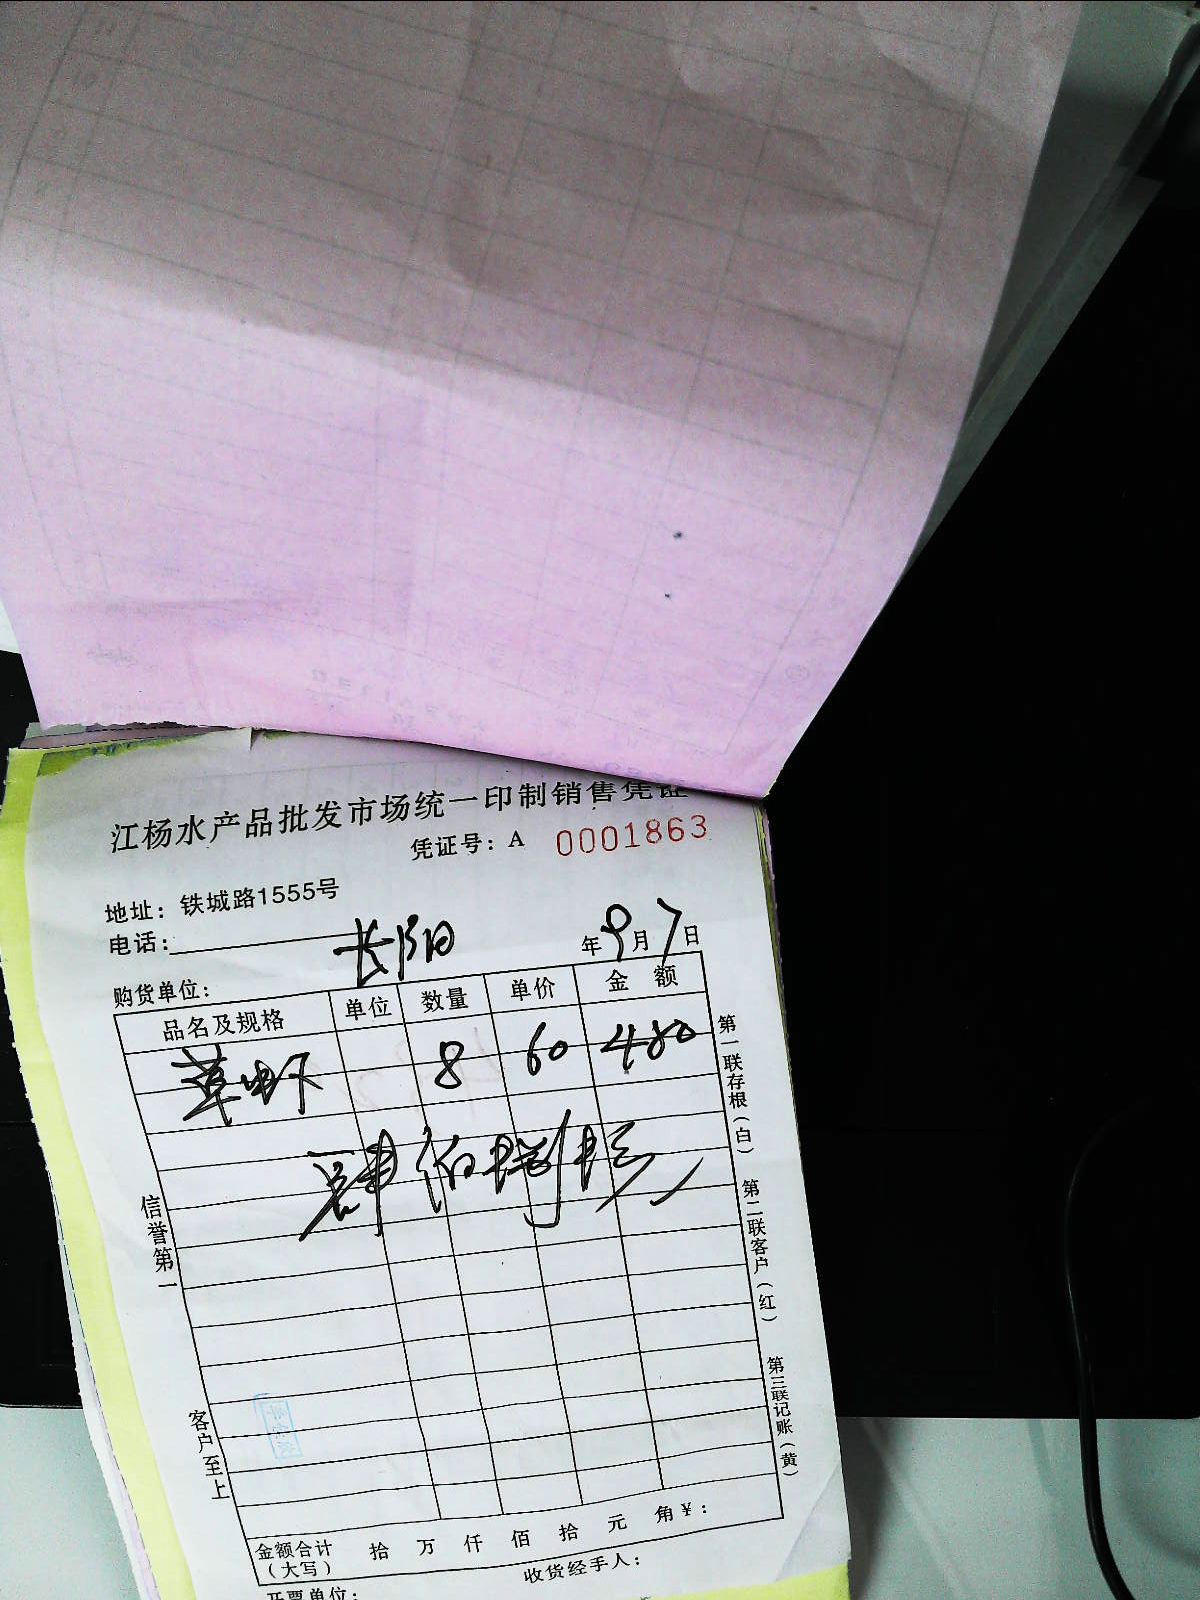 江杨水产品批发市场统一印制销售凭证
凭证号：A 0001863
地址：铁城路1555号
电话：
长阳
年9月7日
购货单位：
品名及规格 单位 数量 单价 金 额
草虾 8 60 480
肆佰捌拾元
信誉第一
客户至上
第一联存根（白）
第二联客户（红）
第三联记账（黄）
金额合计（大写） 拾 万 仟 佰 拾 元 角￥：
收货经手人：
开票单位：